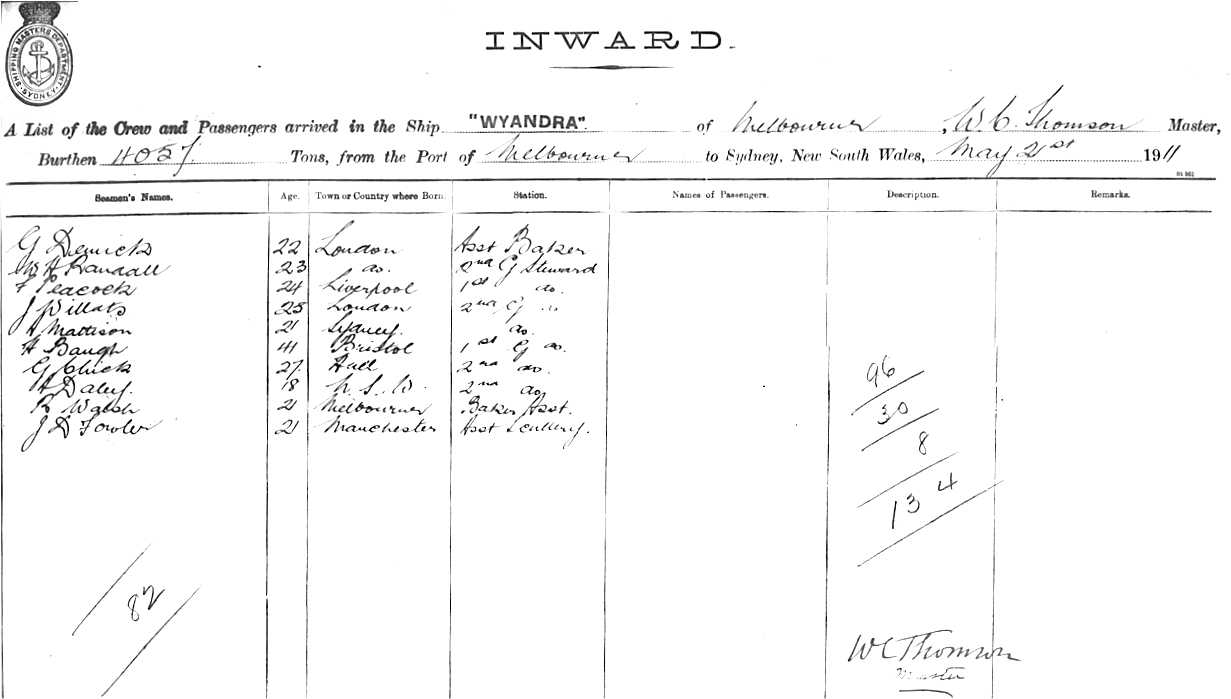 SHIPPING MASTERS DEPARTMENT SYDNEY
INWARD.
A List of the Crew and Passengers arrived in the Ship "WYANDRA". of Melbourne, W. C. Thomson Master,
Burthen 4057 Tons, from the Port of Melbourne to Sydney, New South Wales, May 21st 1911
Seamen's Names. Age. Town or Country where Born. Station. Names of Passengers. Description. Remarks.
G 22 London Asst Baker
W H Randall 23 do. 2nd G Steward
F Peacock 24 Liverpool 1st do.
J Willats 25 London 2nd G do
A Mattison 21 Sydney. do.
H Baugh 41 Bristol 1st G do.
G Chick 27 Hull 2nd do.
A Daley. 18 N. S. W. 2nd do
R Walsh 21 Melbourne Baker Asst.
J D Fowler 21 Manchester Asst Scullery.
96
30
8
134
82
W C Thomson
Master